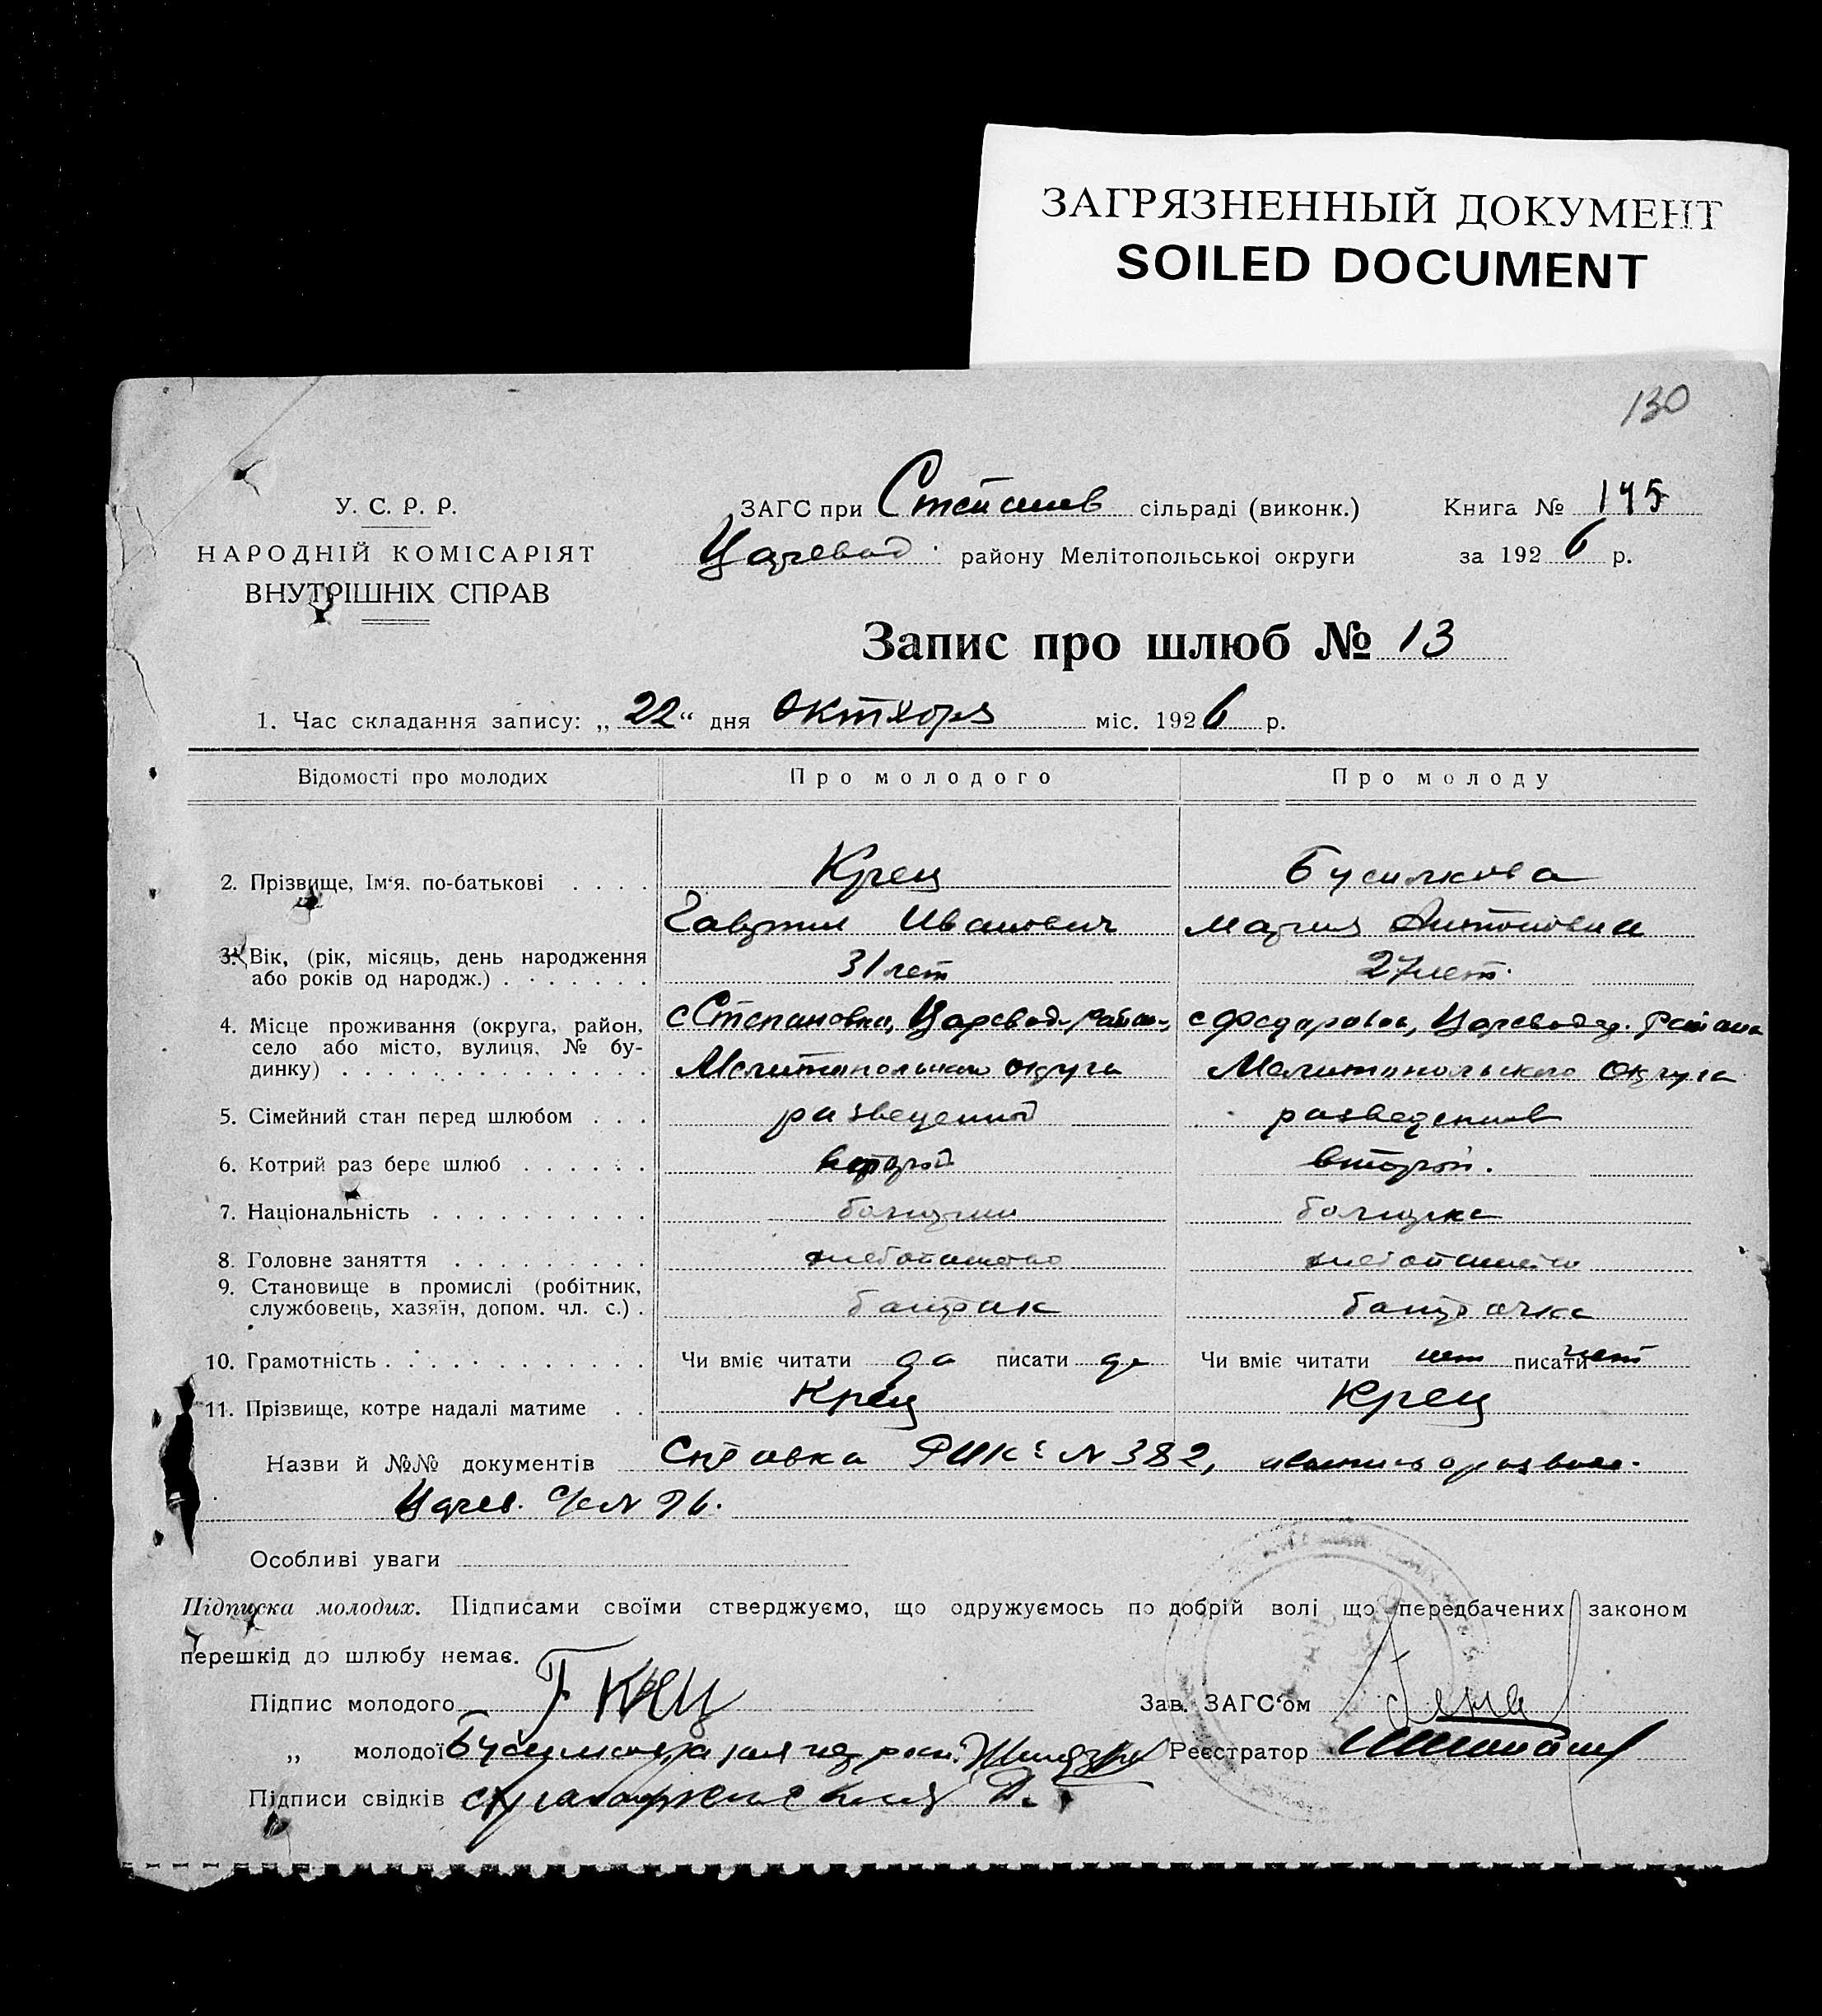 ЗАГРЯЗНЕННЫЙ ДОКУМЕНТ
SOILED DOCUMENT
130
У. С. Р. Р.
НАРОДНІЙ КОМІСАРІЯТ
ВНУТРІШНІХ СПРАВ
ЗАГС при Степанов сільраді (виконк.)
Царевод. району Мелітопольської округи
Книга № 145
за 1926 р.
Запис про шлюб № 13
1. Час складання запису: „22“ дня Октября міс. 1926 р.
Відомості про молодих Про молодого Про молоду
2. Прізвище, Ім‘я, по-батькові . . . . Крец
Гаврил Иванович Мария Антоновна
3. Вік, (рік, місяць, день народження
або років од народж.) . . . . . . . 31 лет 27 лет.
4. Місце проживання (округа, район, с Степановка, Царевод. район, с Федоровка, Царевод. Района
село або місто, вулиця, № бу-
динку) . . . . . . . . . . . . . . Мелитопольского Округа Мелитопольского Округа
5. Сімейний стан перед шлюбом . . . разведеный
6. Котрий раз бере шлюб . . . . . . второй второй.
7. Національність . . . . . . . . . . болгарин болгарка
8. Головне заняття . . . . . . . . . хлебопашество хлебопашество
9. Становище в промислі (робітник,
службовець, хазяїн, допом. чл. с.) . батрак батрачка
10. Грамотність . . . . . . . . . . . . Чи вміє читати да писати да Чи вміє читати нет писати нет
11. Прізвище, котре надалі матиме . . Крец Крец
Назви й №№ документів Справка РИК N 382,
Царев. с/с N 76.
Особливі уваги
Підписка молодих. Підписами своїми стверджуємо, що одружуємось по добрій волі що передбачених законом
перешкід до шлюбу немає.
Підпис молодого Г Крец Зав. ЗАГС‘ом
„ молодої Реєстратор
Підписи свідків